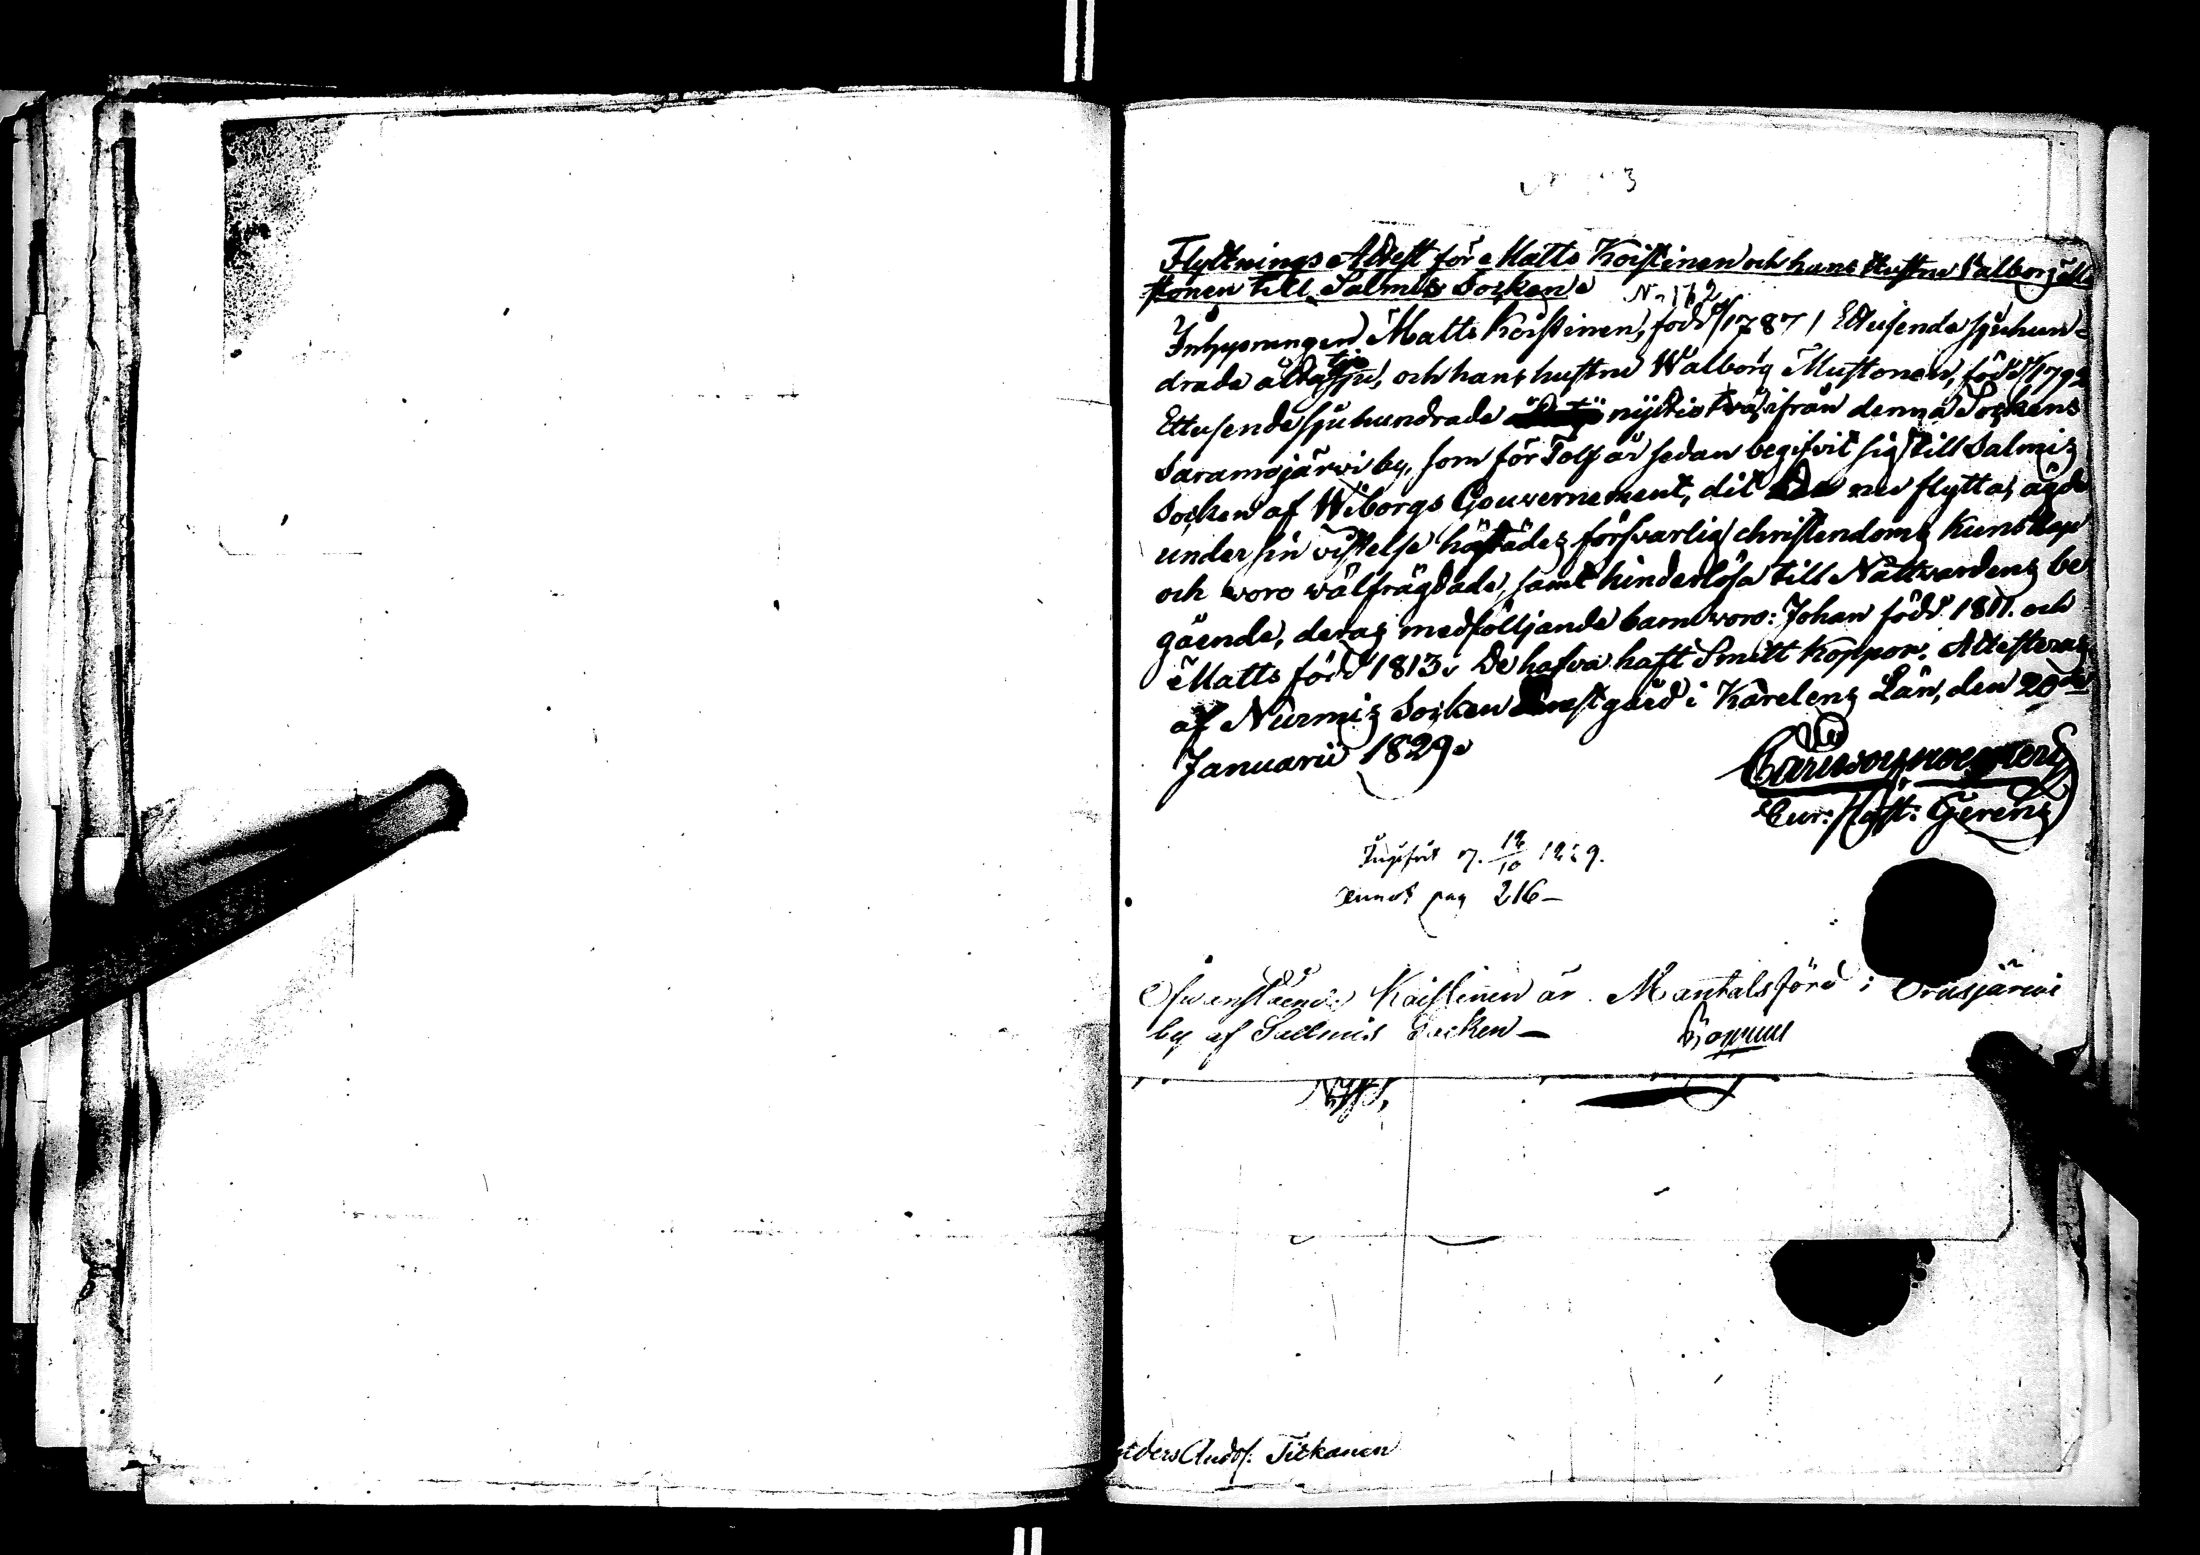 3
Flyttnings Attest för Matts Koistinen och hans Hustru Valborg Mu-
stonen till Salmis Socken.
N 172
Inhysningen Matts Koistinen, född /1787/ Ettusende sjuhun-
drade åttatijo sju, och hans hustru Walborg Mustonen, född /1792
Ettusende sjuhundrade nijttio två, ifrån denna Sockens
Saramojärvi by, som för Tolf år sedan begifvit sig till Salmis
Socken af Wiborgs Gouvernement, dit nu flyttas, ägde
under sin vistelse härstädes försvarlig christendoms kunskap
och voro välfrägdade, samt hinderlösa till Nattvardens be
gående, deras medföljande barn voro: Johan född 1811. och
Matts född 1813. De hafva haft Smitt koppor. Attesteras
af Nurmis Socken Prestgård i Karelens Län, den 20de
Januarii 1829.
Cur: Past: Gerens
Ingifvit d. 12/10 1829.
pag 216 –
Ofvanstående Koistinen är Mantalsförd i Orusjärvi
by af Sallmis Socken –
Anders Andsf. Tickanen